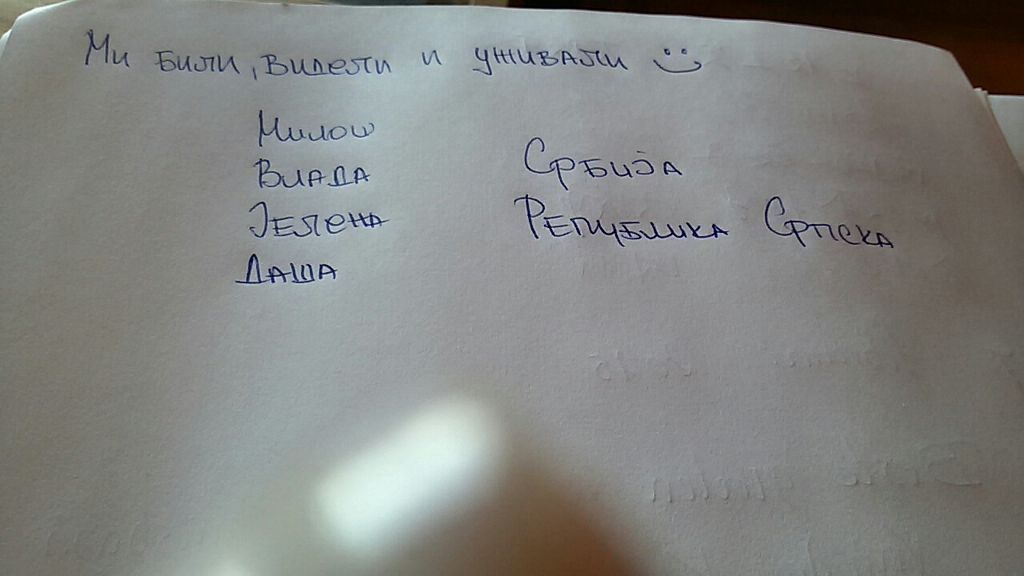 Ми били, видели и уживали
Милош
Влада
Јелена
Даша
Србија
Република Српска